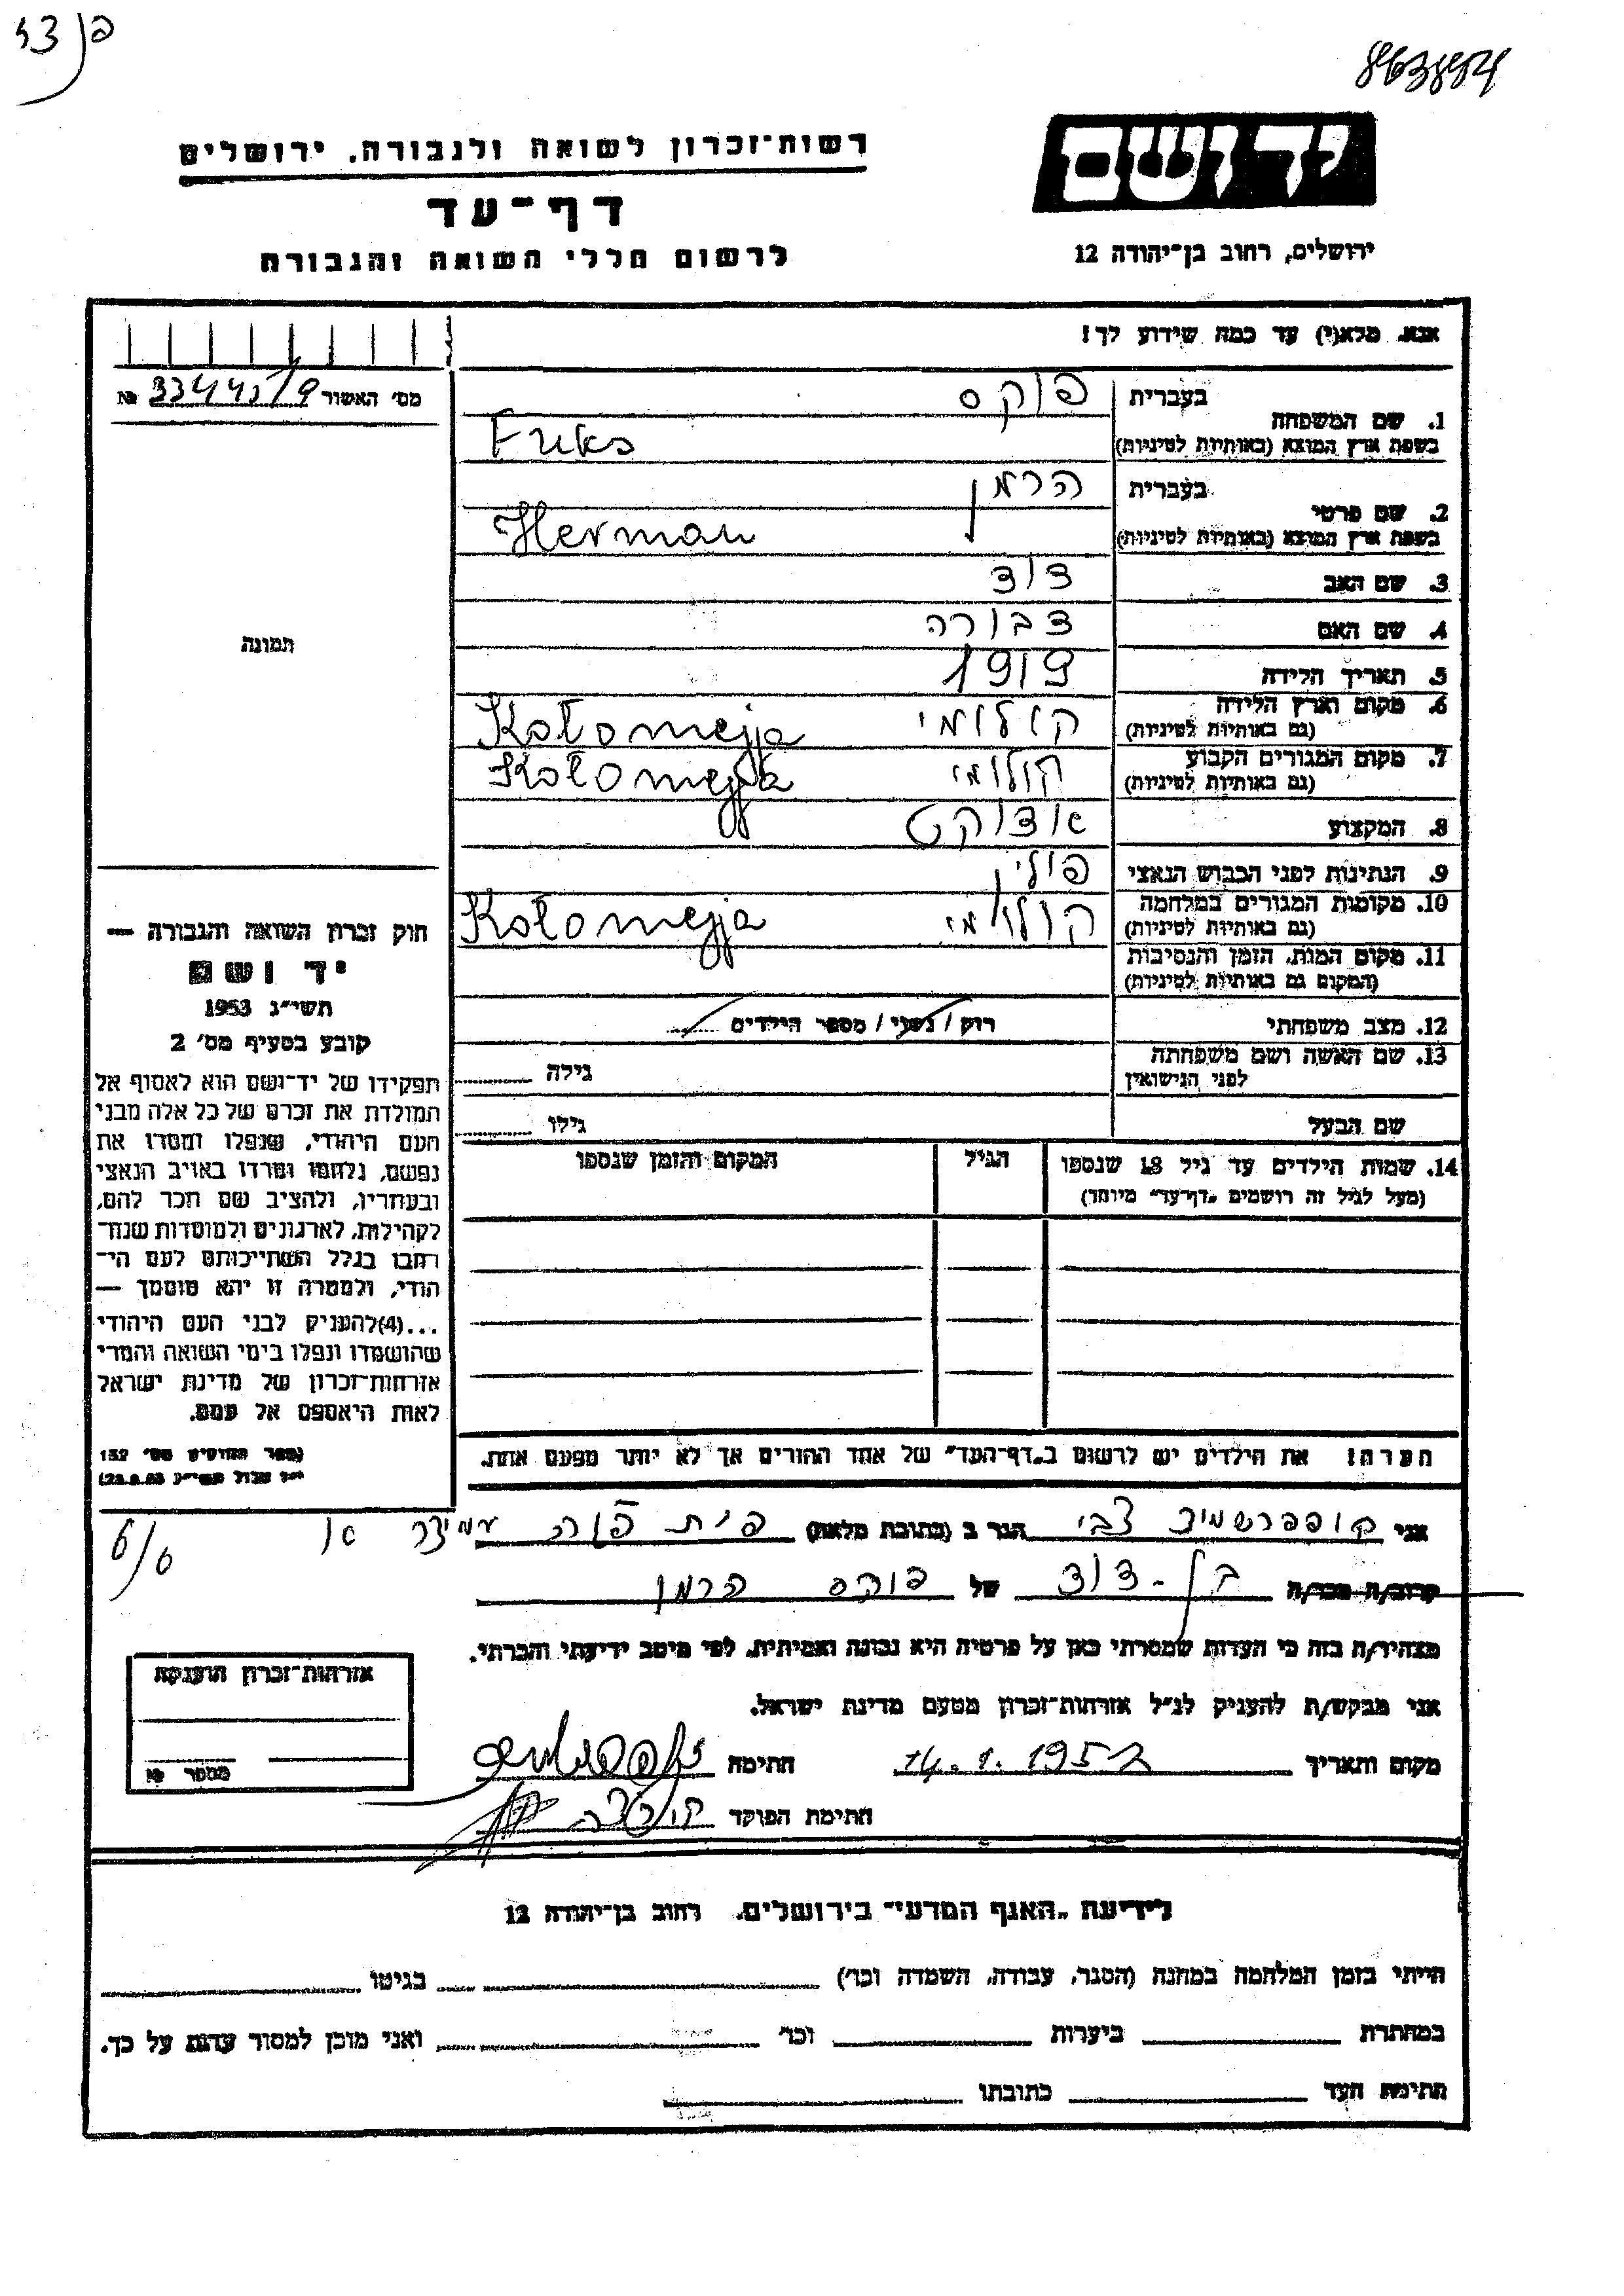 863884
רשות־זכרון לשואה ולגבורה, ירושלים
דף־עד
לרשום חללי השואה והגבורה
יד ושם
ירושלים, רחוב בן־יהודה 12
אנא, מלא(י) עד כמה שידוע לך!
מס׳ האשור №
1. שם המשפחה בעברית פוקס
בשפת ארץ המוצא (באותיות לטיניות) Fuks
2. שם פרטי בעברית הרמן
בשפת ארץ המוצא (באותיות לטיניות) Herman
3. שם האב דוד
4. שם האם דבורה
5. תאריך הלידה 1919
6. מקום וארץ הלידה (גם באותיות לטיניות) קולומי Kołomejja
7. מקום המגורים הקבוע (גם באותיות לטיניות) קולומי Kołomejja
8. המקצוע אדוקט
9. הנתינות לפני הכבוש הנאצי פולין
10. מקומות המגורים במלחמה (גם באותיות לטיניות) קולומי Kołomejja
11. מקום המות, הזמן והנסיבות (המקום גם באותיות לטיניות)
12. מצב משפחתי רוק / נשוי / מספר הילדים
13. שם האשה ושם משפחתה לפני הנישואין גילה
שם הבעל גילו
14. שמות הילדים עד גיל 18 שנספו הגיל המקום והזמן שנספו
(מעל לגיל זה רושמים „דף־עד״ מיוחד)
הערה! את הילדים יש לרשום ב„דף־העד״ של אחד ההורים אך לא יותר מפעם אחת.
תמונה
חוק זכרון השואה והגבורה —
יד ושם
תשי״ג 1953
קובע בסעיף מס׳ 2
תפקידו של יד־ושם הוא לאסוף אל
המולדת את זכרם של כל אלה מבני
העם היהודי, שנפלו ומסרו את
נפשם, נלחמו ומרדו באויב הנאצי
ובעוזריו, ולהציב שם וזכר להם,
לקהילות, לארגונים ולמוסדות שנח־
רבו בגלל השתייכותם לעם הי־
הודי, ולמטרה זו יהא מוסמך —
...(4)להעניק לבני העם היהודי
שהושמדו ונפלו בימי השואה והמרי
אזרחות־זכרון של מדינת ישראל
לאות היאספם אל עמם.
(ספר החוקים מס׳ 132
אני קופפרשמיד צבי הגר ב (כתובת מלאה) עמידר 6/6
קרוב/ה מכר/ה בן-דוד של פוקס הרמן
מצהיר/ה בזה כי העדות שמסרתי כאן על פרטיה היא נכונה ואמיתית, לפי מיטב ידיעתי והכרתי.
אני מבקש/ת להעניק לנ״ל אזרחות־זכרון מטעם מדינת ישראל.
מקום ותאריך 14.1.195 חתימה
חתימת הפוקד
אזרחות־זכרון הוענקה
מספר №
לידיעת „האגף המדעי״ בירושלים, רחוב בן־יהודה 12
הייתי בזמן המלחמה במחנה (הסגר, עבודה, השמדה וכו׳) בגיטו
במחתרת ביערות וכו׳ ואני מוכן למסור עדות על כך.
חתימת העד כתובתו